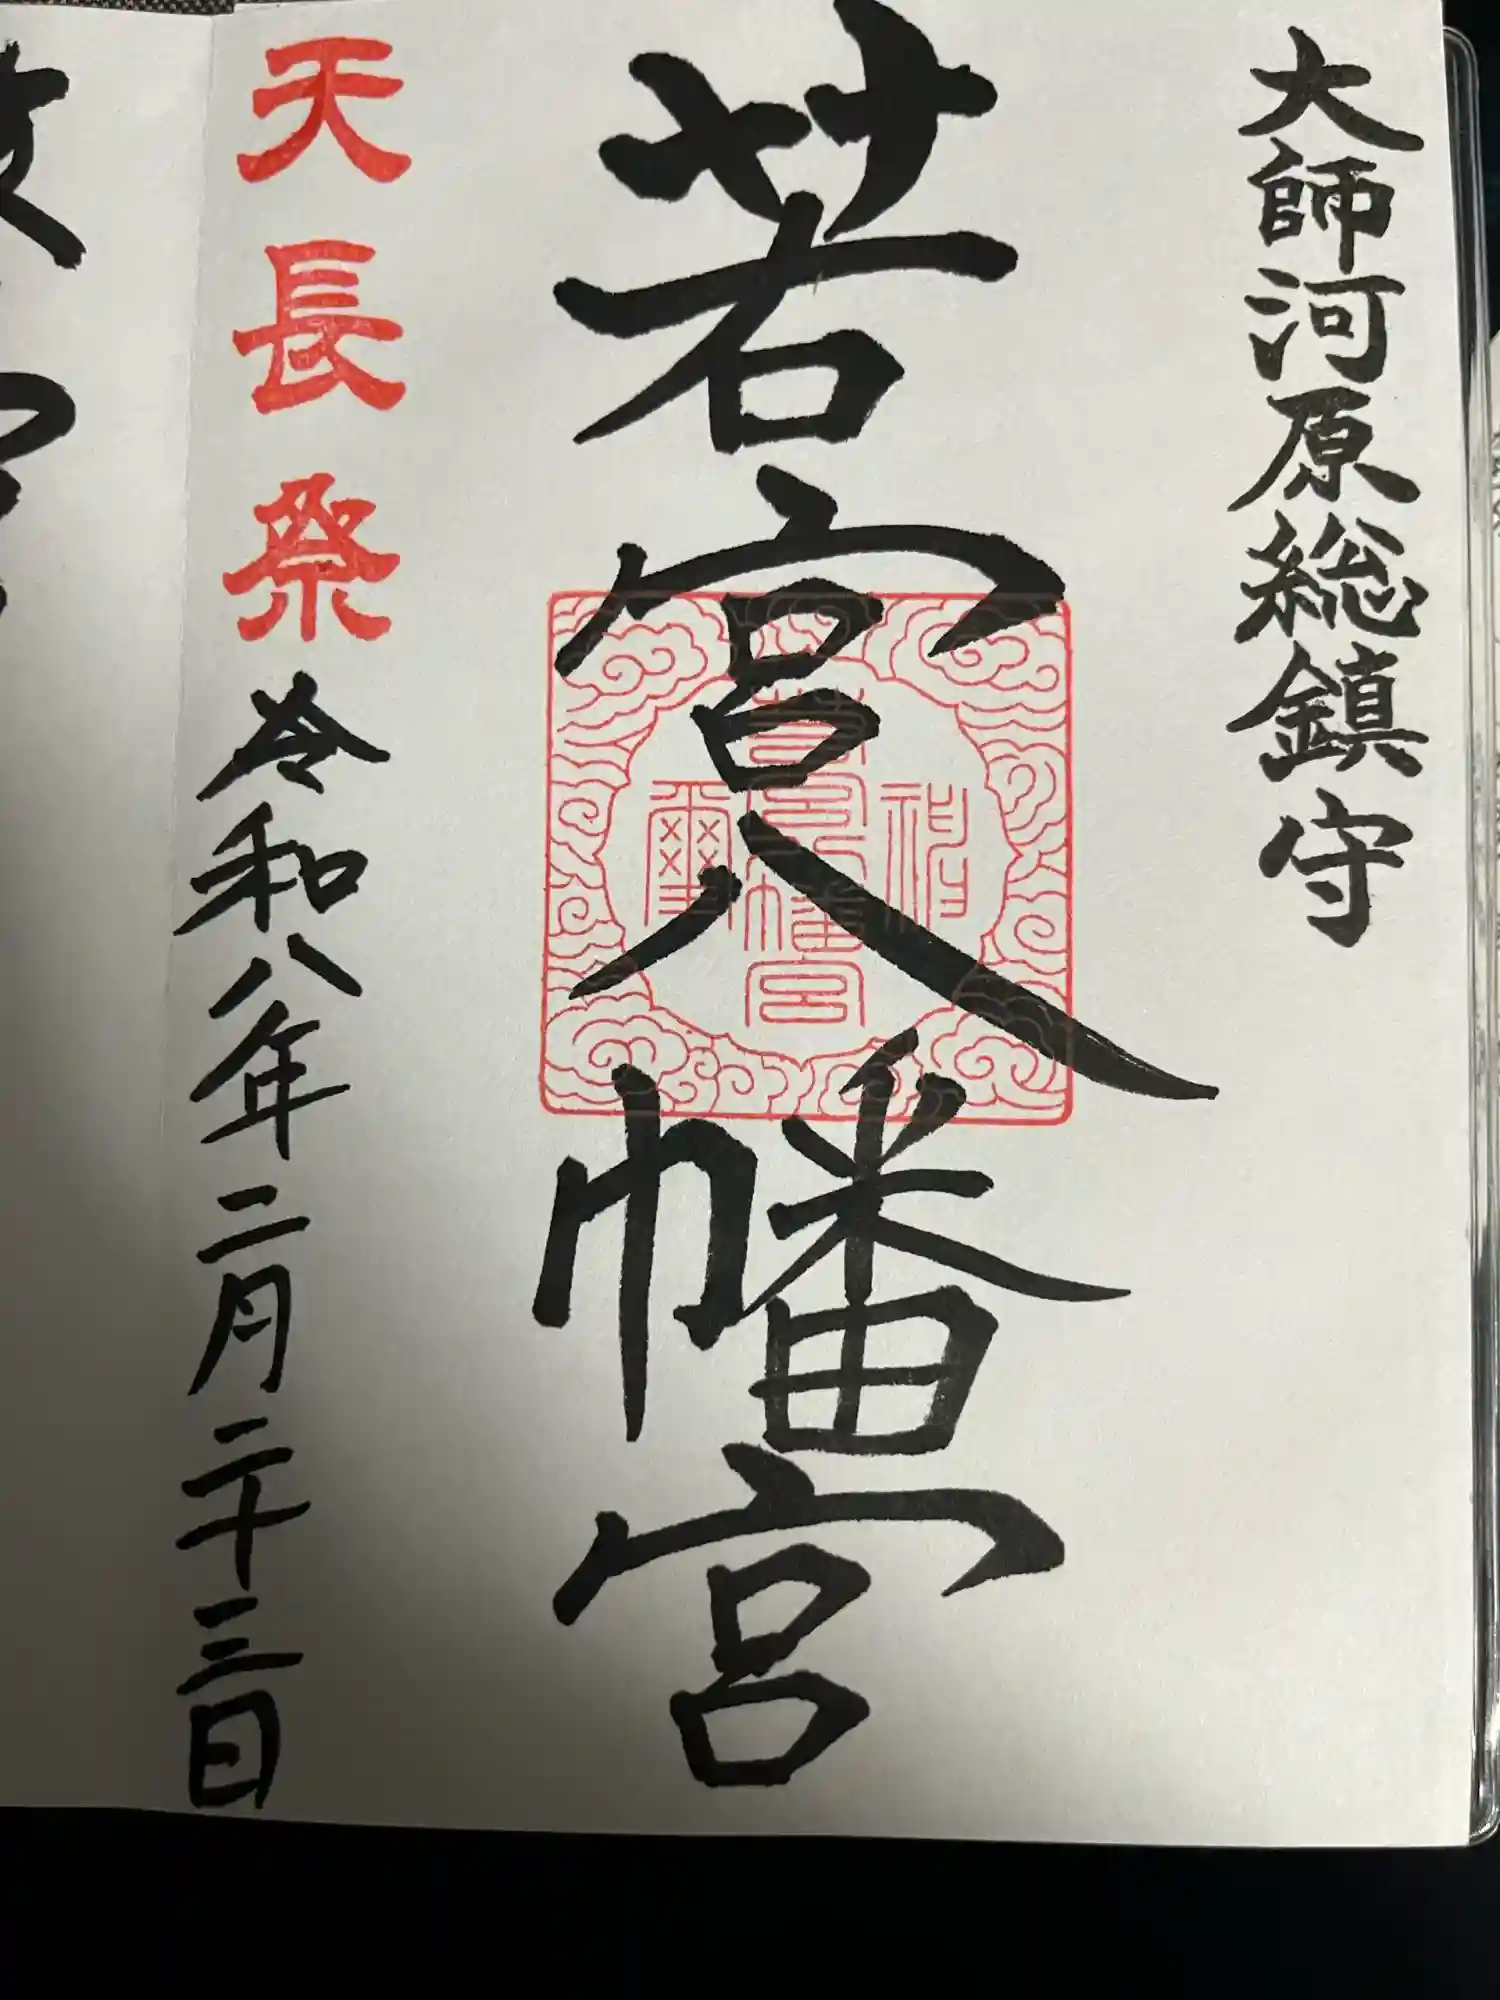 大師河原総鎮守
若宮八幡宮
天長祭
令和八年二月二十三日